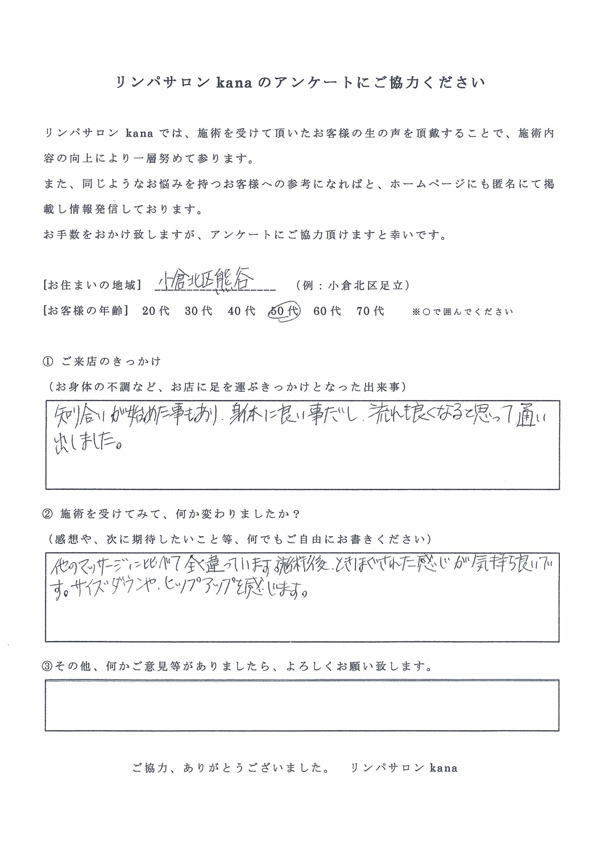 リンパサロン kana のアンケートにご協力ください
リンパサロン kana では、施術を受けて頂いたお客様の生の声を頂戴することで、施術内
容の向上により一層努めて参ります。
また、同じようなお悩みを持つお客様への参考になればと、ホームページにも匿名にて掲
載し情報発信しております。
お手数をおかけ致しますが、アンケートにご協力頂けますと幸いです。
[お住まいの地域] 小倉北区熊谷 （例：小倉北区足立）
[お客様の年齢] 20代 30代 40代 50代 60代 70代 ※○で囲んでください
① ご来店のきっかけ
（お身体の不調など、お店に足を運ぶきっかけとなった出来事）
知り合いが始めた事もあり、身体に良い事だし、流れも良くなると思って通い
出しました。
② 施術を受けてみて、何か変わりましたか？
（感想や、次に期待したいこと等、何でもご自由にお書きください）
他のマッサージに比べて全く違っています。施術後、ときほぐされた感じが気持ち良いで
す。サイズダウンや、ヒップアップを感じます。
③その他、何かご意見等がありましたら、よろしくお願い致します。
ご協力、ありがとうございました。 リンパサロン kana